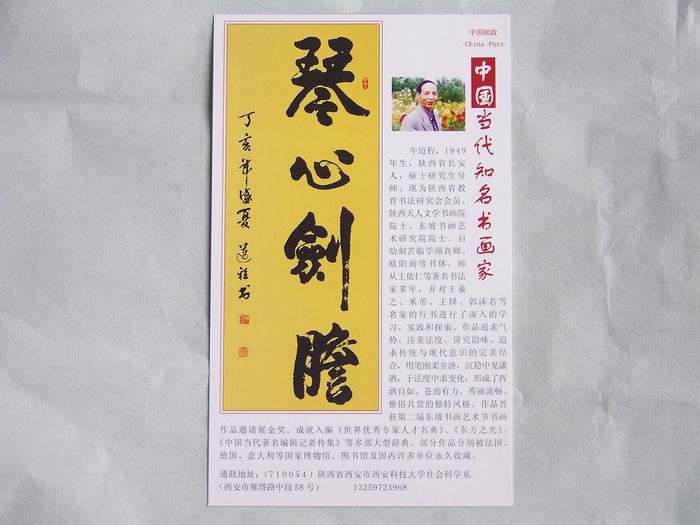 中国邮政
China Post
中国当代知名书画家
琴心剑胆
丁亥年盛夏 迈程书
牛迈程，1949
年生，陕西省长安
人，硕士研究生导
师。现为陕西省教
育书法研究会会员、
陕西天人文学书画院
院士、东坡书画艺
术研究院院士。自
幼刻苦临学颜真卿、
欧阳询等书体，师
从王依仁等著名书法
家多年，并对王羲
之、米芾、王铎、郭沫若等
名家的行书进行了深入的学
习、实践和探索。作品追求气
势、注重法度、讲究韵味，追
求传统与现代意识的完美结
合，用笔刚柔并济，沉稳中见潇
洒，于法度中求变化，形成了挥
洒自如、苍劲有力、秀丽流畅、
雅俗共赏的独特风格。作品曾
获第二届东坡书画艺术节书画
作品邀请展金奖。成就入编《世界优秀专家人才名典》、《东方之光》、
《中国当代著名编辑记者传集》等多部大型辞典。部分作品分别被法国、
德国、意大利等国家博物馆、图书馆及国内许多单位永久收藏。
通联地址：（710054）陕西省西安市西安科技大学社会科学系
（西安市雁塔路中段58号） 13259723968